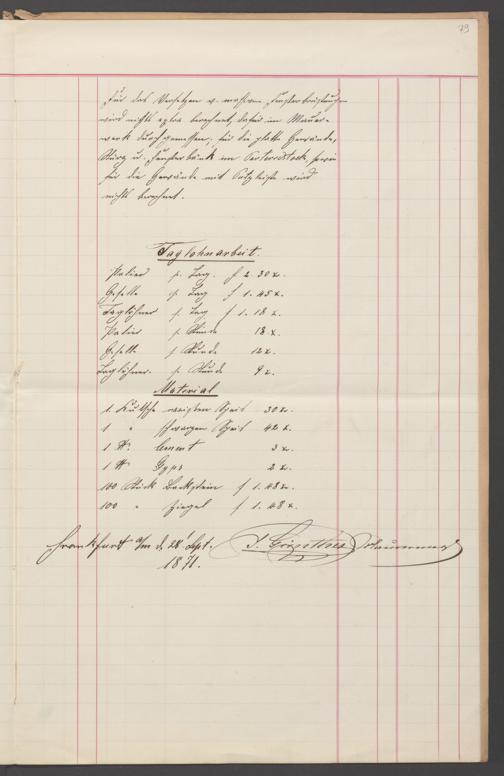 79
Für das Versetzen v. massiven Fensterbrüstungen
wird nichts extra berechnet, dafür im Mauer-
werk durchgemessen, für die glatte Gewände,
Sturz u. Fensterbänk im Parterrestock, sowie
für die Gewände mit wird
nichts berechnet.
Taglohnarbeit.
Palier p. Tag. f 2. 30 x.
Geselle p. Tag f 1. 45 x.
Taglöhner p. Tag f 1. 18 x.
Palier p. Stunde 18 x.
Geselle p. Stunde 12 x.
Taglöhner. p. Stunde 9 x.
Material
1. Bütte weissen Speis 30 x.
1 " schwarzen Speis 42 x.
1 ℔. Cement 3 x.
1 ℔. Gyps 2 x.
100 Stück Backstein f 1. 48 x.
100 " Ziegel f 1. 48 x.
Frankfurt a/m d. 28' Spt.
1871.